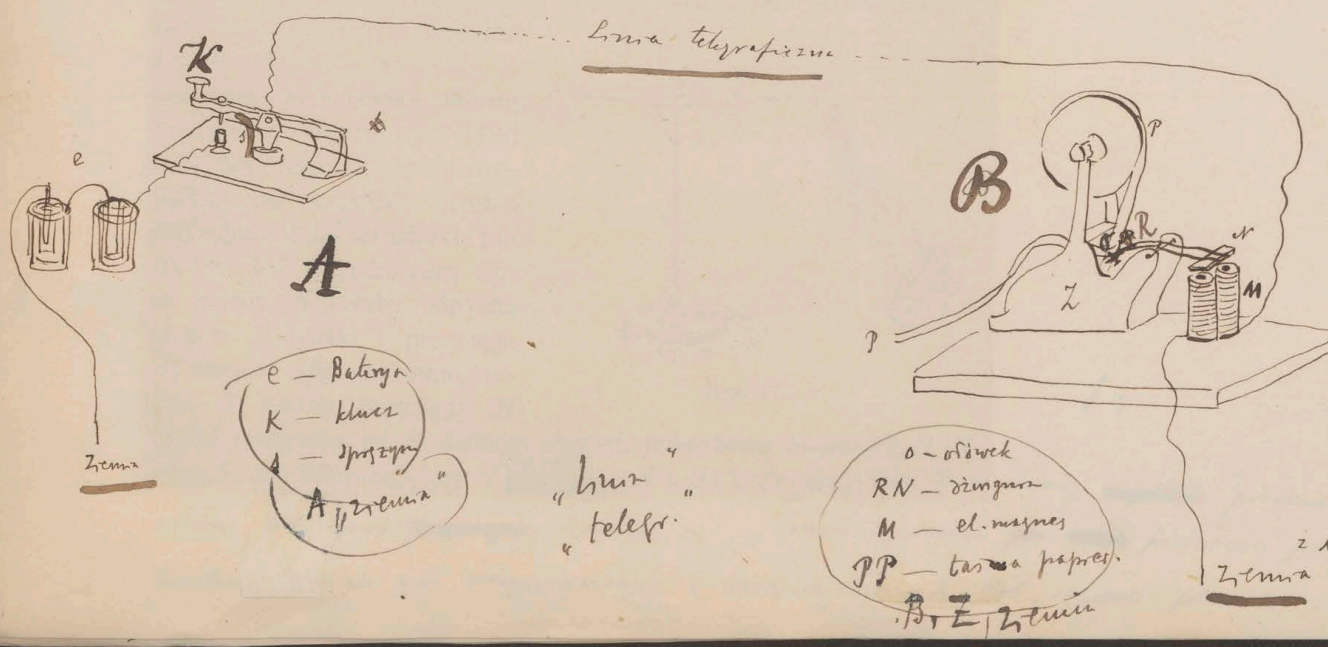 Linia telegraficzna
K
e
A
Ziemia
e — Baterya
K — klucz
s — sprężyna
A, „ziemia"
„Linia"
„telegr."
B
P
R
N
Z
M
P
o — ołówek
RN — dźwignia
M — el. magnes
PP — taśma papier.
B, Z, ziemia
Ziemia